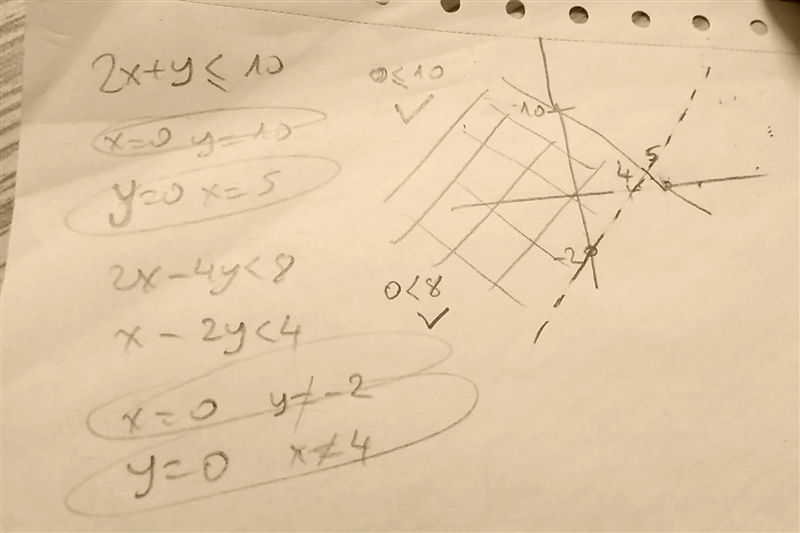 2x+y≤10
x=0 y=10
y=0 x=5
2x-4y<8
x-2y<4
x=0 y≠-2
y=0 x≠4
0≤10
✓
0<8
✓
10
5
4
-2